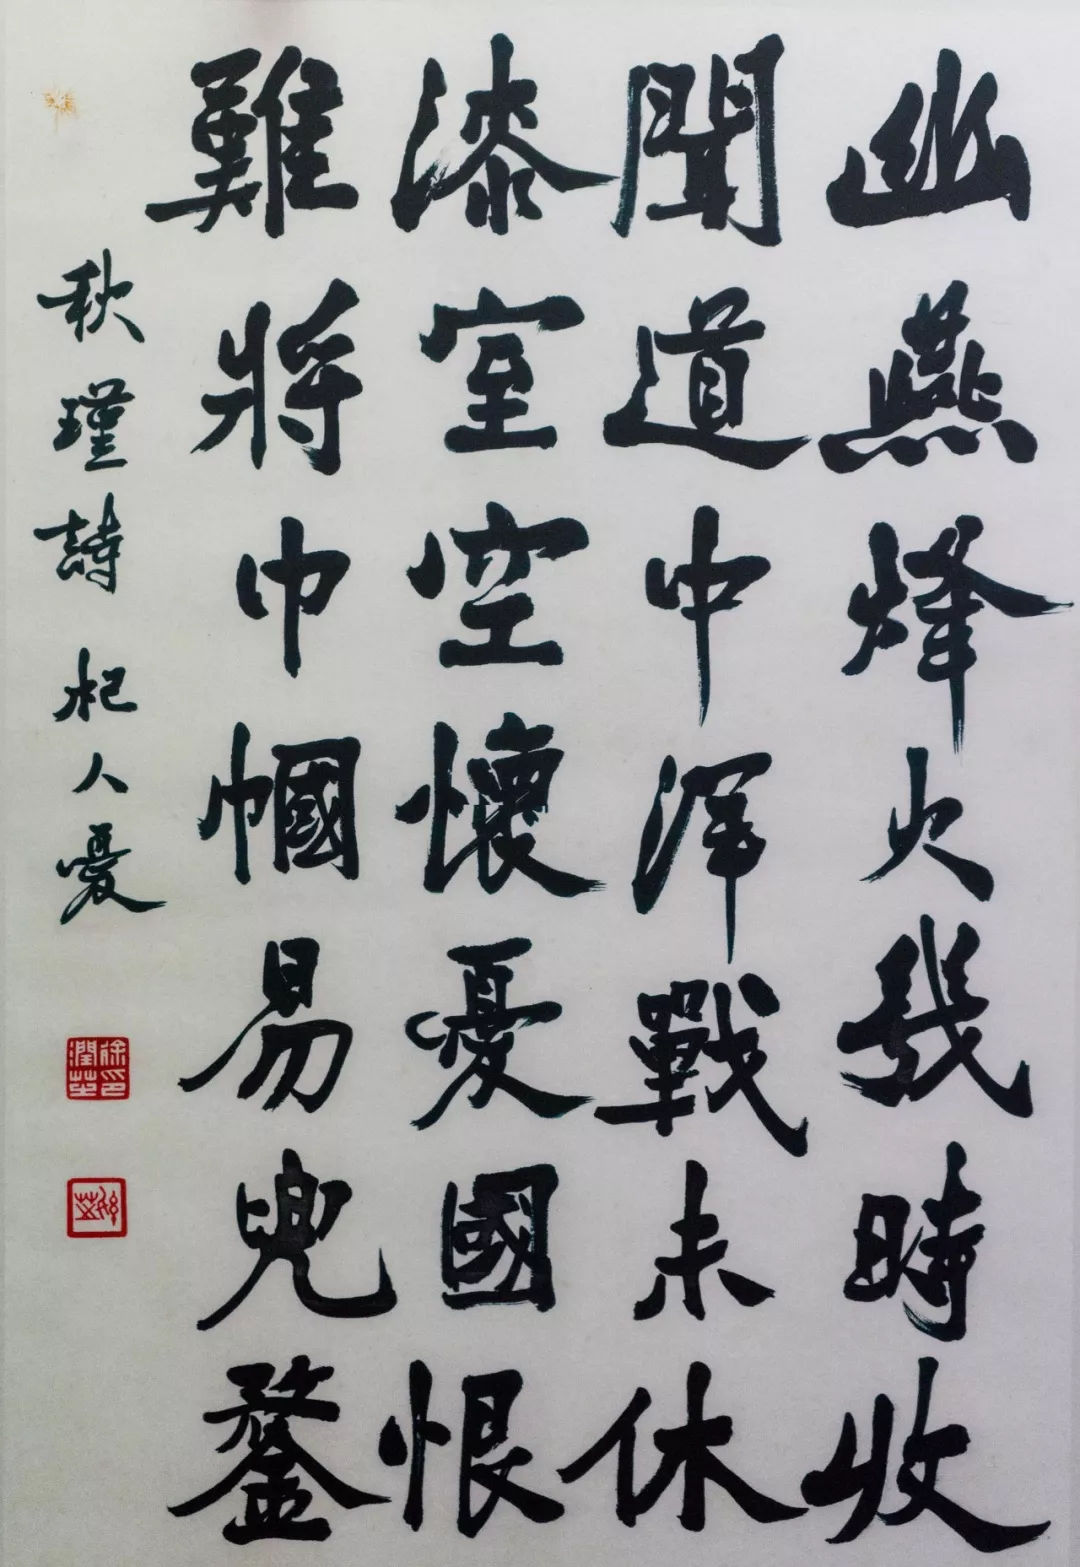 幽燕烽火幾時收
聞道中洋戰未休
漆室空懷憂國恨
難將巾幗易兜鍪
秋瑾詩 杞人憂
徐潤芝印